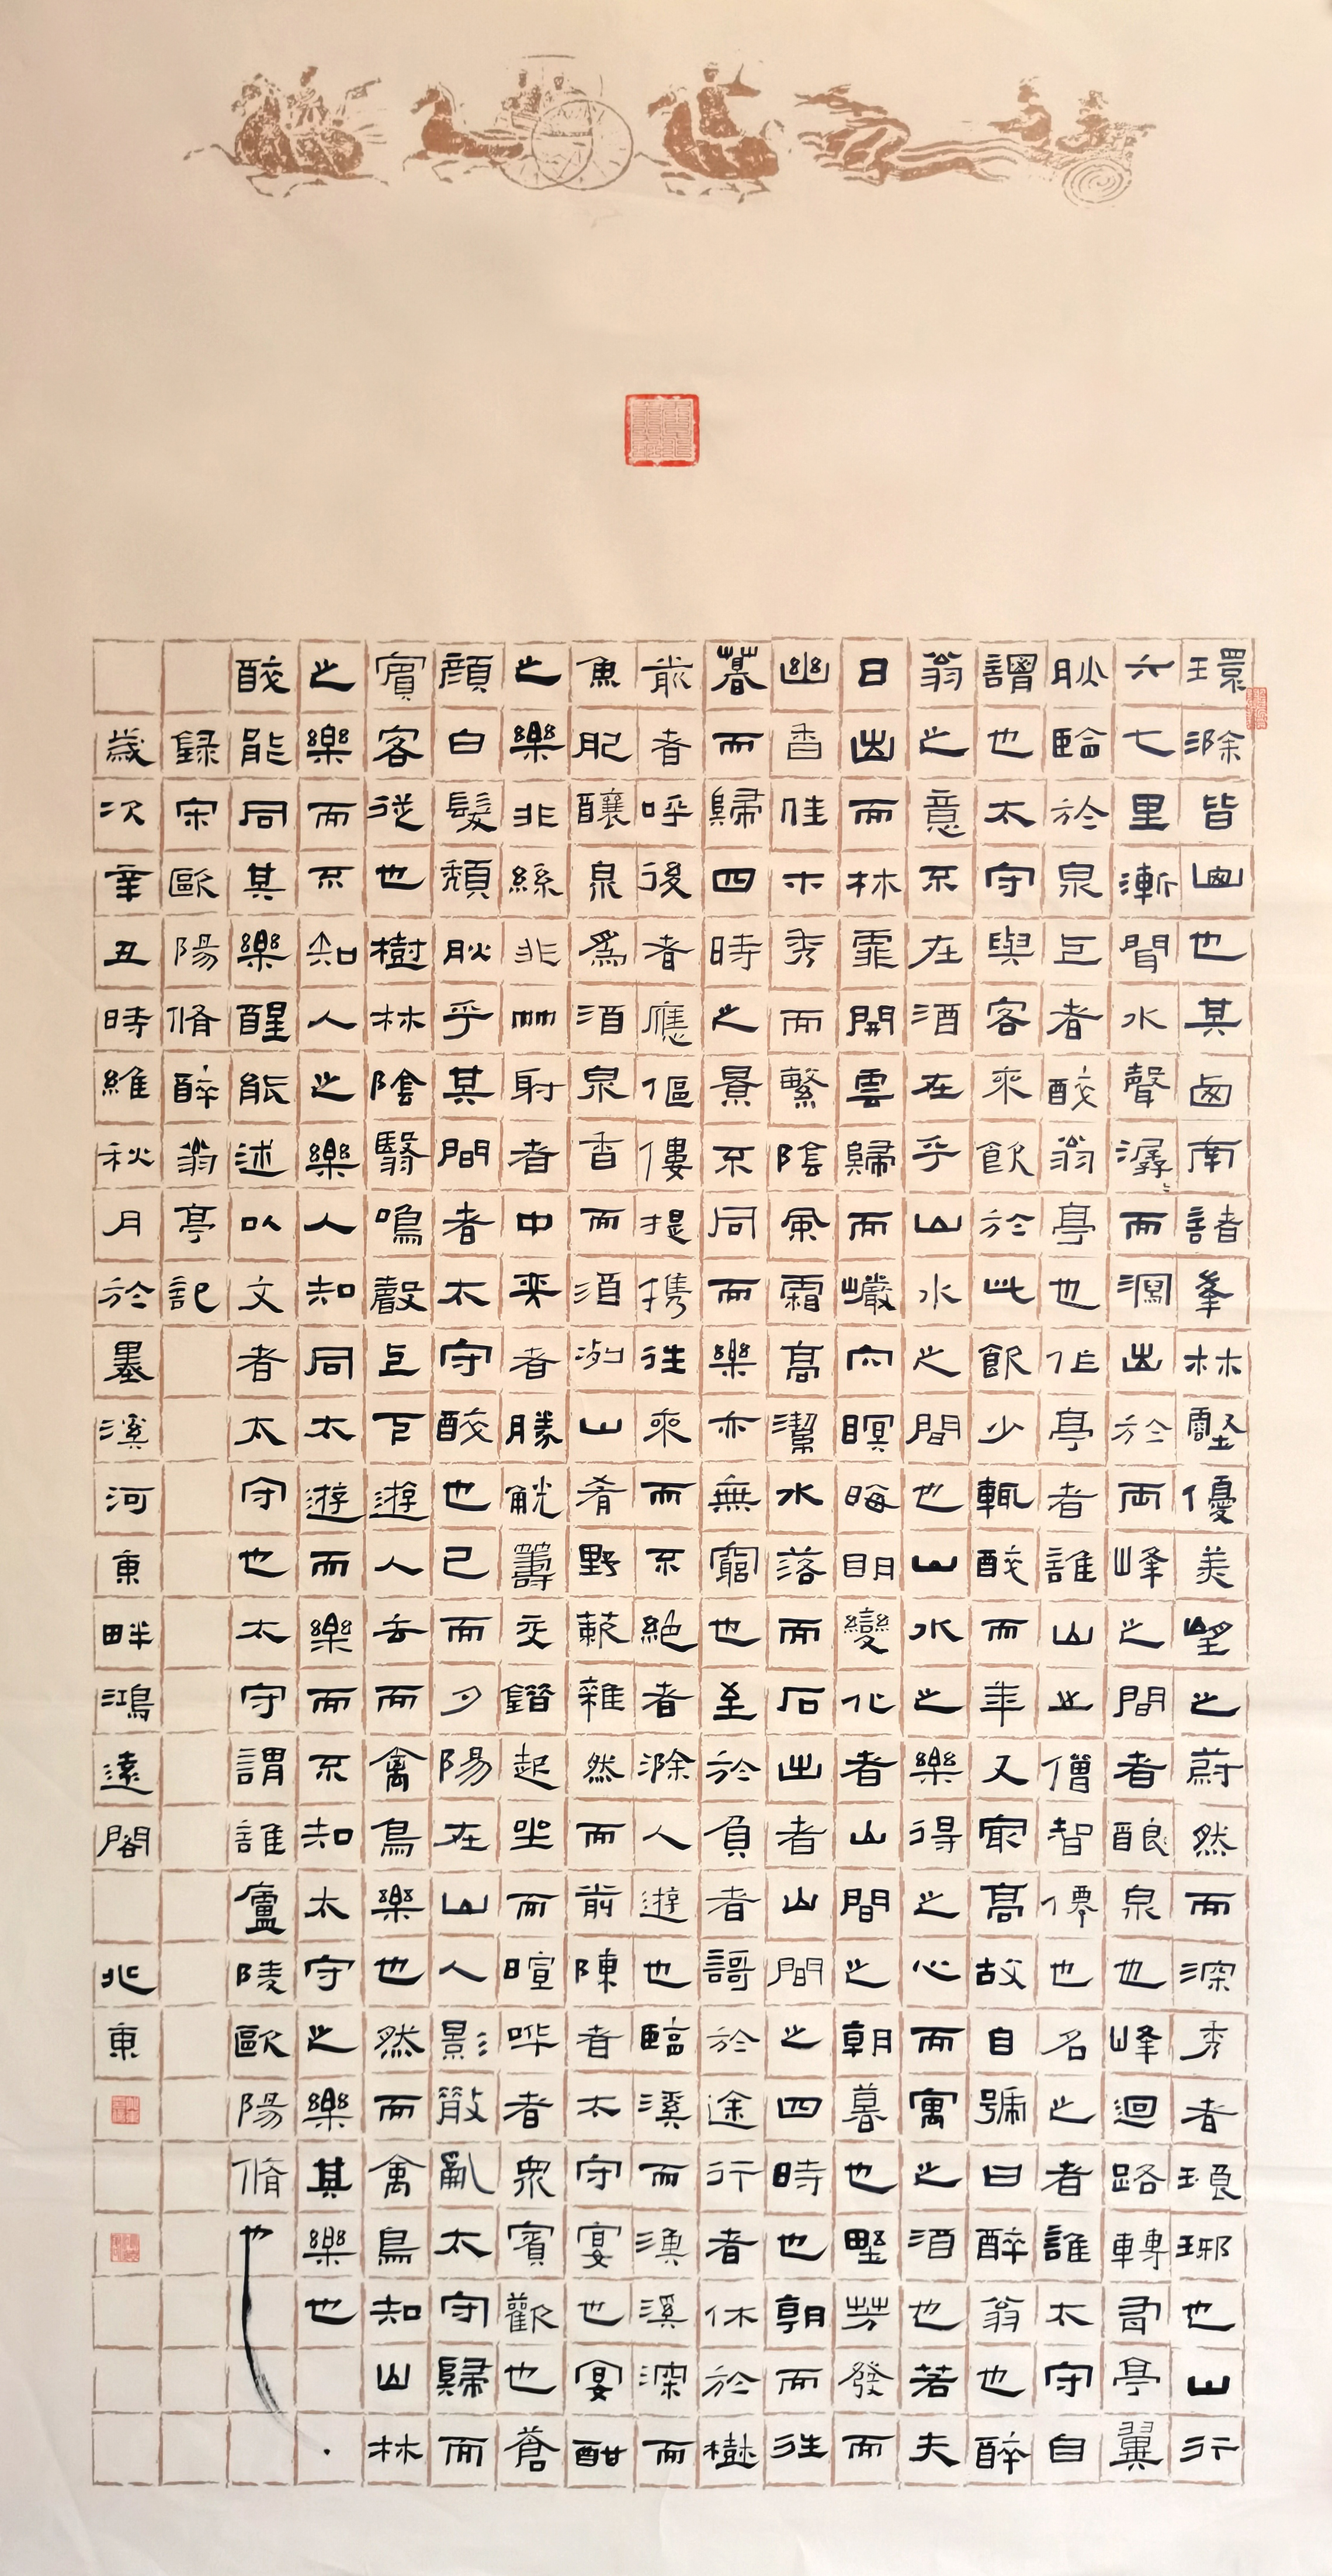 環滁皆山也其西南諸峯林壑優美望之蔚然而深秀者琅琊也山行
六七里漸聞水聲潺〻而瀉出於兩峰之間者釀泉也峰迴路轉有亭翼
然臨於泉上者醉翁亭也作亭者誰山之僧智僊也名之者誰太守自
謂也太守與客來飲於此飲少輒醉而年又最高故自號曰醉翁也醉
翁之意不在酒在乎山水之間也山水之樂得之心而寓之酒也若夫
日出而林霏開雲歸而巖穴暝晦明變化者山間之朝暮也野芳發而
幽香佳木秀而繁陰風霜高潔水落而石出者山間之四時也朝而往
暮而歸四時之景不同而樂亦無窮也至於負者謌於途行者休於樹
前者呼後者應傴僂提攜往來而不絕者滁人遊也臨溪而漁溪深而
魚肥釀泉爲酒泉香而酒洌山肴野蔌雜然而前陳者太守宴也宴酣
之樂非絲非竹射者中弈者勝觥籌交錯起坐而喧嘩者衆賓歡也蒼
顏白髮頹然乎其間者太守醉也已而夕陽在山人影散亂太守歸而
賓客從也樹林陰翳鳴聲上下遊人去而禽鳥樂也然而禽鳥知山林
之樂而不知人之樂人知同太遊而樂而不知太守之樂其樂也
醉能同其樂醒能述以文者太守也太守謂誰廬陵歐陽脩也
錄宋歐陽脩醉翁亭記
歲次辛丑時維秋月於墨溪河東畔鴻遠閣 兆東